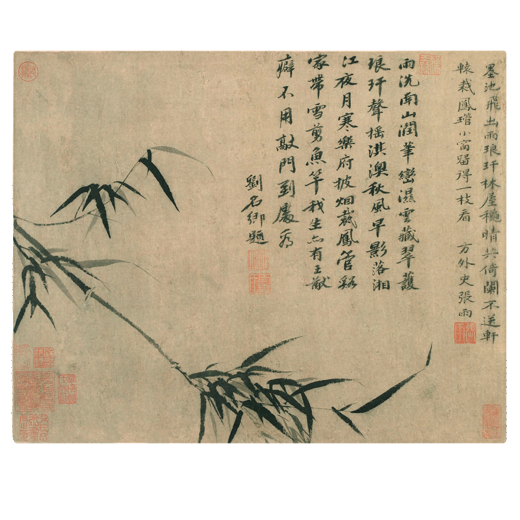 墨池飛出雨琅玕林屋穐晴共倚闌不逆軒
轅裁鳳琯小窗留得一枝看 方外史張雨
雨洗南山潤華蠻濕雲藏翠護
琅玕聲搖淇澳秋風早影落湘
江夜月寒樂府披烟裁鳳管谿
家帶雪剪魚竿我生亦有王猷
癖不用敲門到處看
劉石卿題